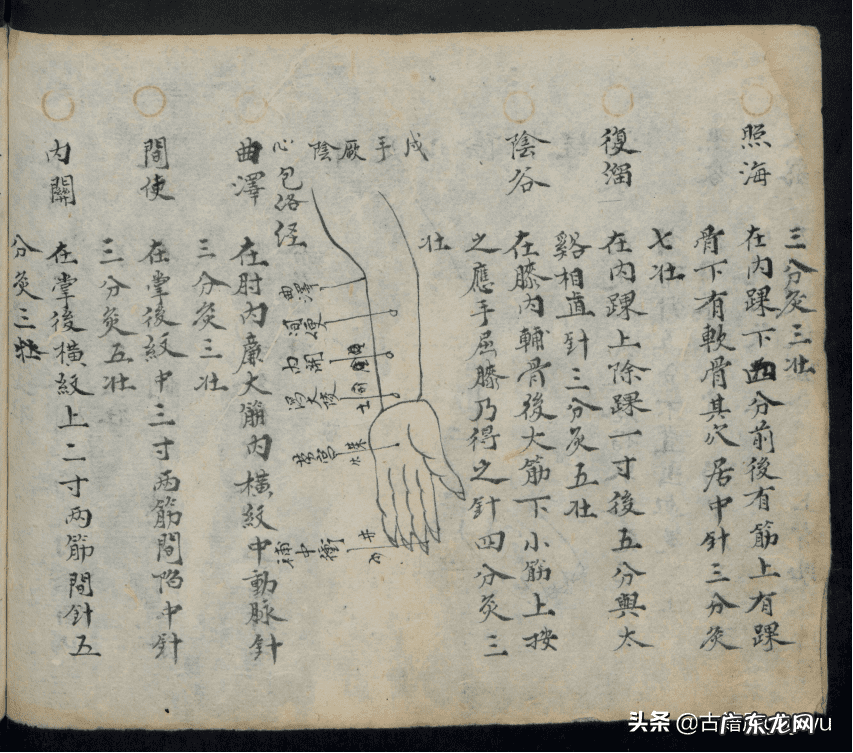 三分灸三壯
照海
在内踝下四分前後有筋上有踝
骨下有軟骨其穴居中針三分灸
七壯
復溜
在内踝上除踝一寸後五分與太
谿相直針三分灸五壯
陰谷
在膝内輔骨後大筋下小筋上按
之應手屈膝乃得之針四分灸三
壯
戌手厥陰
心包洛経
曲澤
間使
内関
大陵
勞宮
中衝
井
曲澤
在肘内廉大筋内横紋中動脉針
三分灸三壯
間使
在掌後紋中三寸两筋間陷中針
三分灸五壯
内關
在掌後横紋上二寸两筋間針五
分灸三壯
头条 @古
广东龙网